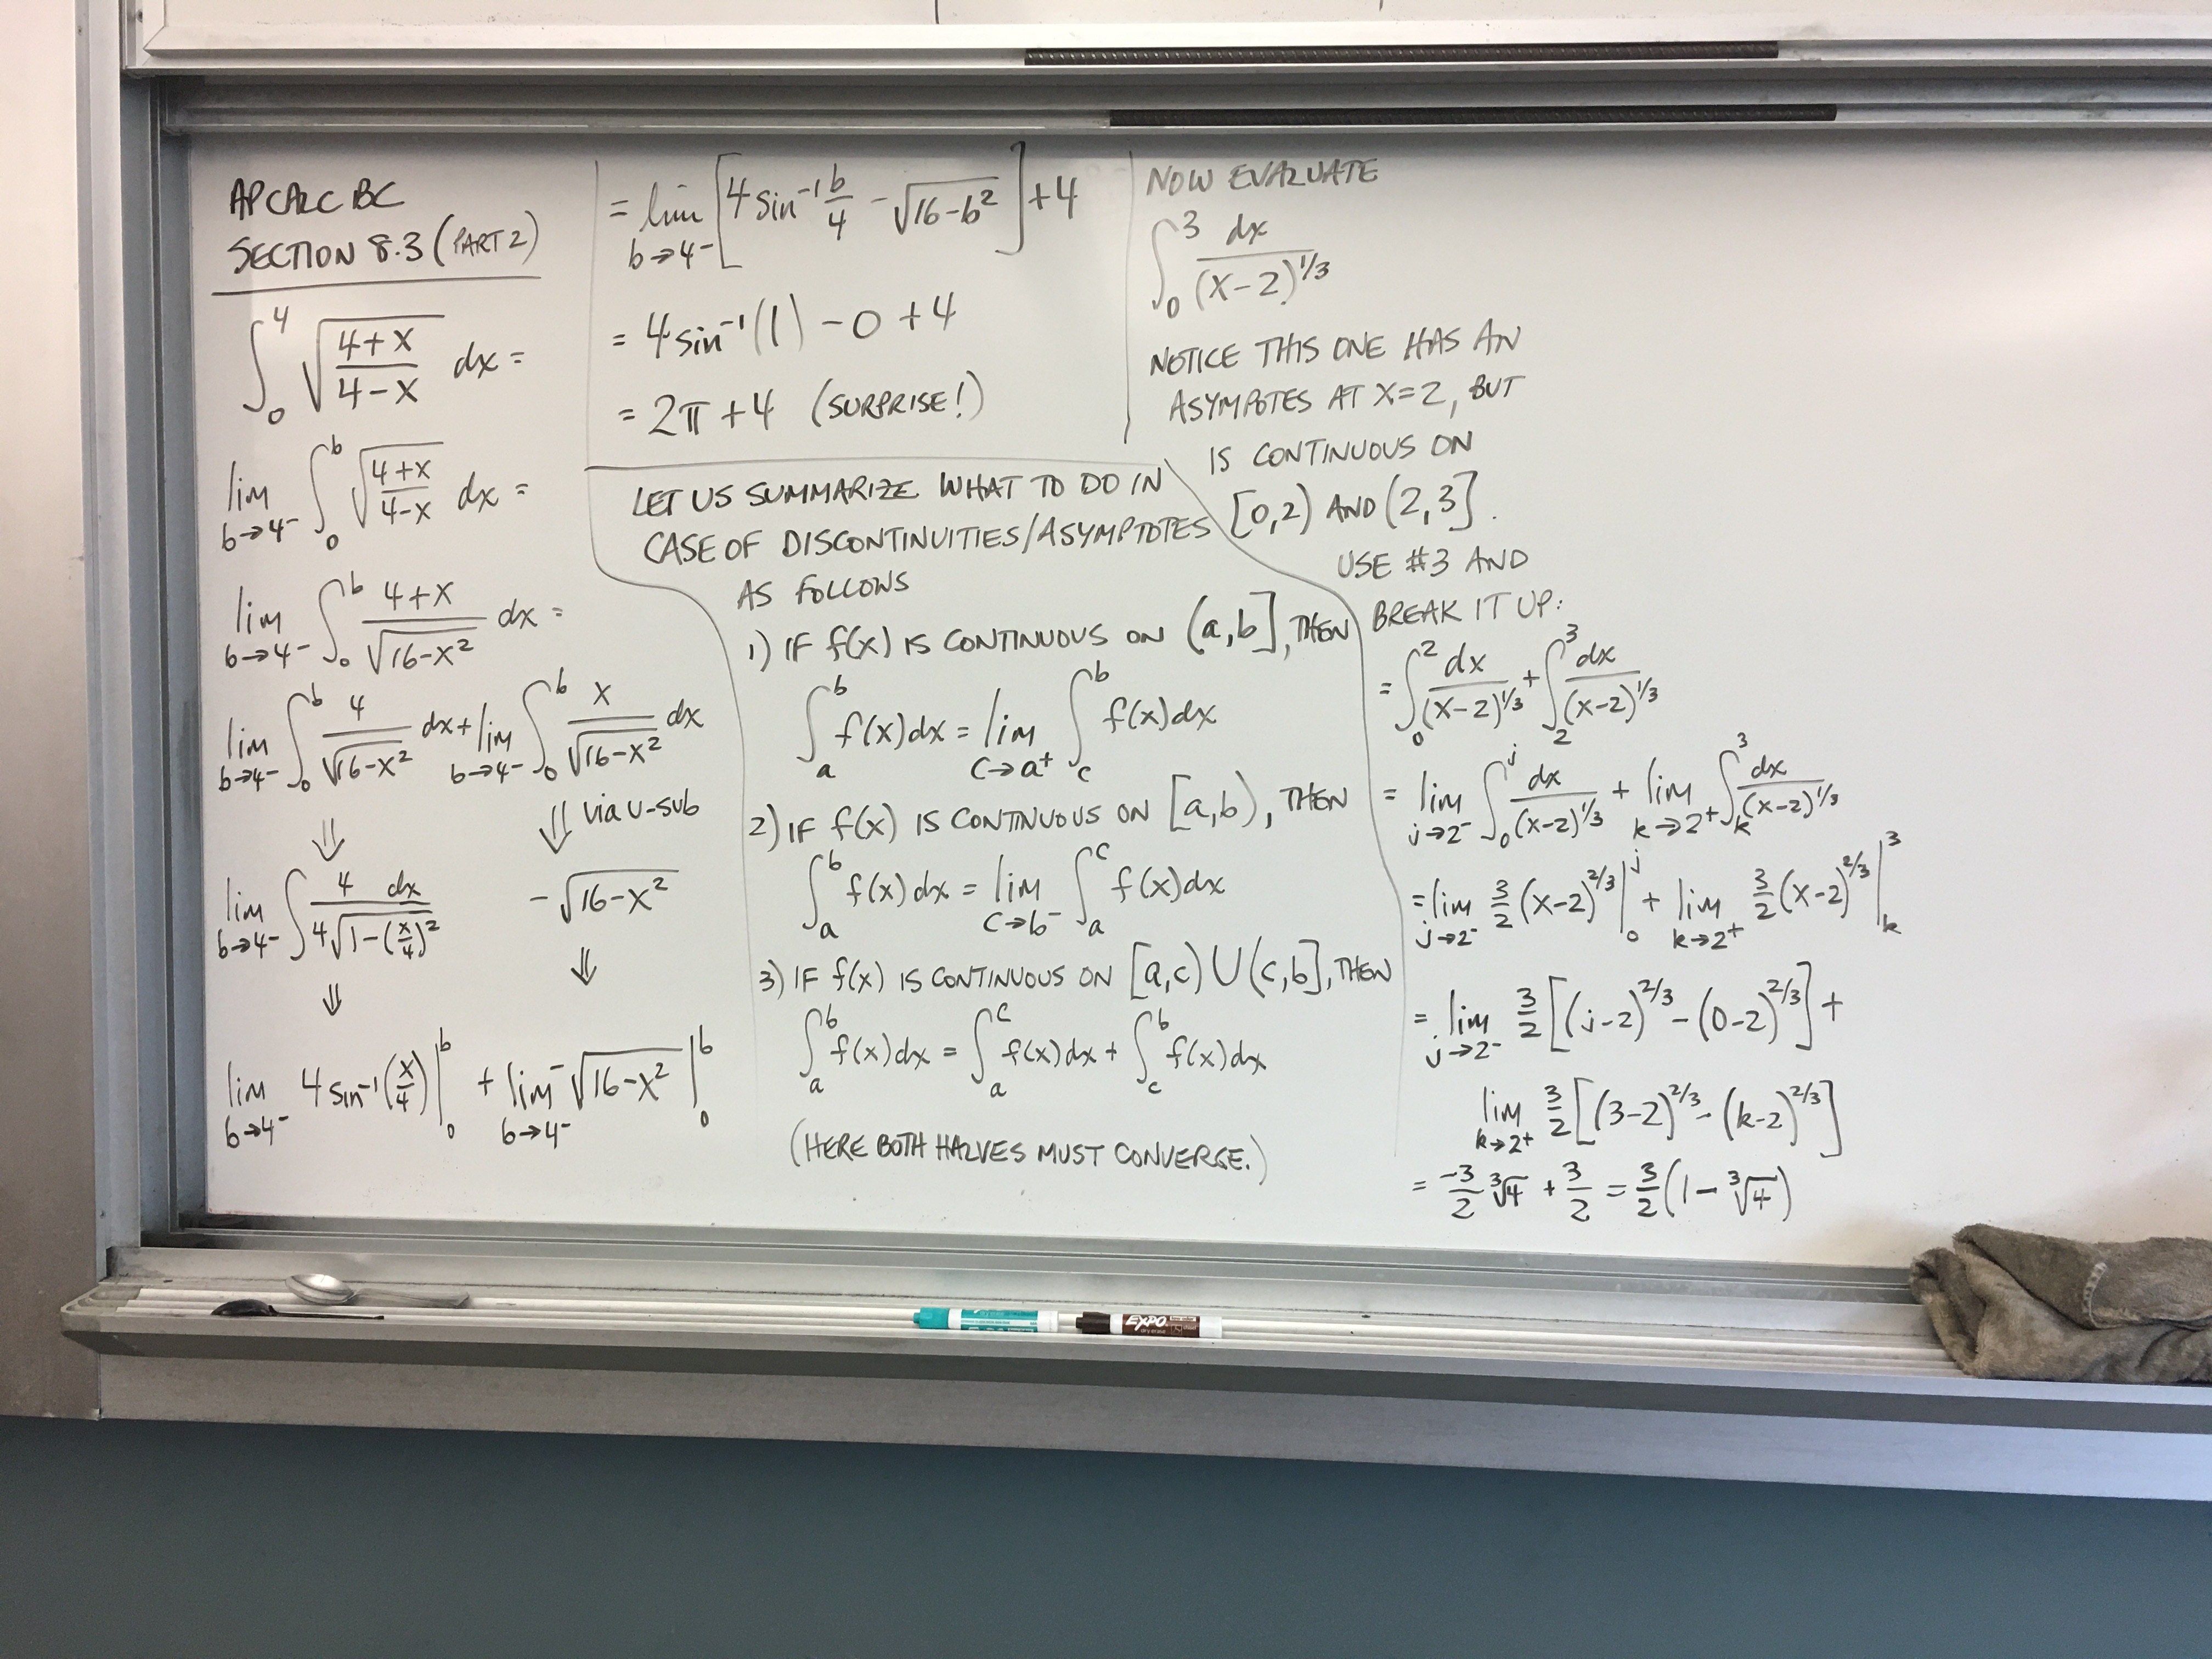 AP CALC BC
SECTION 8.3 (PART 2)
∫₀⁴ √((4+x)/(4-x)) dx =
lim b→4⁻ ∫₀ᵇ √((4+x)/(4-x)) dx =
lim b→4⁻ ∫₀ᵇ (4+x)/√(16-x²) dx =
lim b→4⁻ ∫₀ᵇ 4/√(16-x²) dx + lim b→4⁻ ∫₀ᵇ x/√(16-x²) dx
⇓ ⇓ via u-sub
lim b→4⁻ ∫ 4 dx/(4√(1-(x/4)²)) -√(16-x²)
⇓ ⇓
lim b→4⁻ 4 sin⁻¹(x/4)|₀ᵇ + lim b→4⁻ -√(16-x²)|₀ᵇ
= lim b→4⁻ [4 sin⁻¹ b/4 - √(16-b²)] + 4
= 4 sin⁻¹(1) - 0 + 4
= 2π + 4 (SURPRISE!)
LET US SUMMARIZE WHAT TO DO IN
CASE OF DISCONTINUITIES/ASYMPTOTES
AS FOLLOWS
1) IF f(x) IS CONTINUOUS ON (a,b], THEN
∫ₐᵇ f(x)dx = lim c→a⁺ ∫_c^b f(x)dx
2) IF f(x) IS CONTINUOUS ON [a,b), THEN
∫ₐᵇ f(x)dx = lim c→b⁻ ∫_a^c f(x)dx
3) IF f(x) IS CONTINUOUS ON [a,c) ∪ (c,b], THEN
∫ₐᵇ f(x)dx = ∫_a^c f(x)dx + ∫_c^b f(x)dx
(HERE BOTH HALVES MUST CONVERGE.)
NOW EVALUATE
∫₀³ dx/(x-2)^(1/3)
NOTICE THIS ONE HAS AN
ASYMPOTES AT X=2, BUT
IS CONTINUOUS ON
[0,2) AND (2,3].
USE #3 AND
BREAK IT UP:
= ∫₀² dx/(x-2)^(1/3) + ∫₂³ dx/(x-2)^(1/3)
= lim j→2⁻ ∫₀ʲ dx/(x-2)^(1/3) + lim k→2⁺ ∫_k^3 dx/(x-2)^(1/3)
= lim j→2⁻ 3/2 (x-2)^(2/3)|₀ʲ + lim k→2⁺ 3/2 (x-2)^(2/3)|_k^3
= lim j→2⁻ 3/2 [(j-2)^(2/3) - (0-2)^(2/3)] +
lim k→2⁺ 3/2 [(3-2)^(2/3) - (k-2)^(2/3)]
= -3/2 ∛4 + 3/2 = 3/2 (1 - ∛4)
EXPO
dry erase